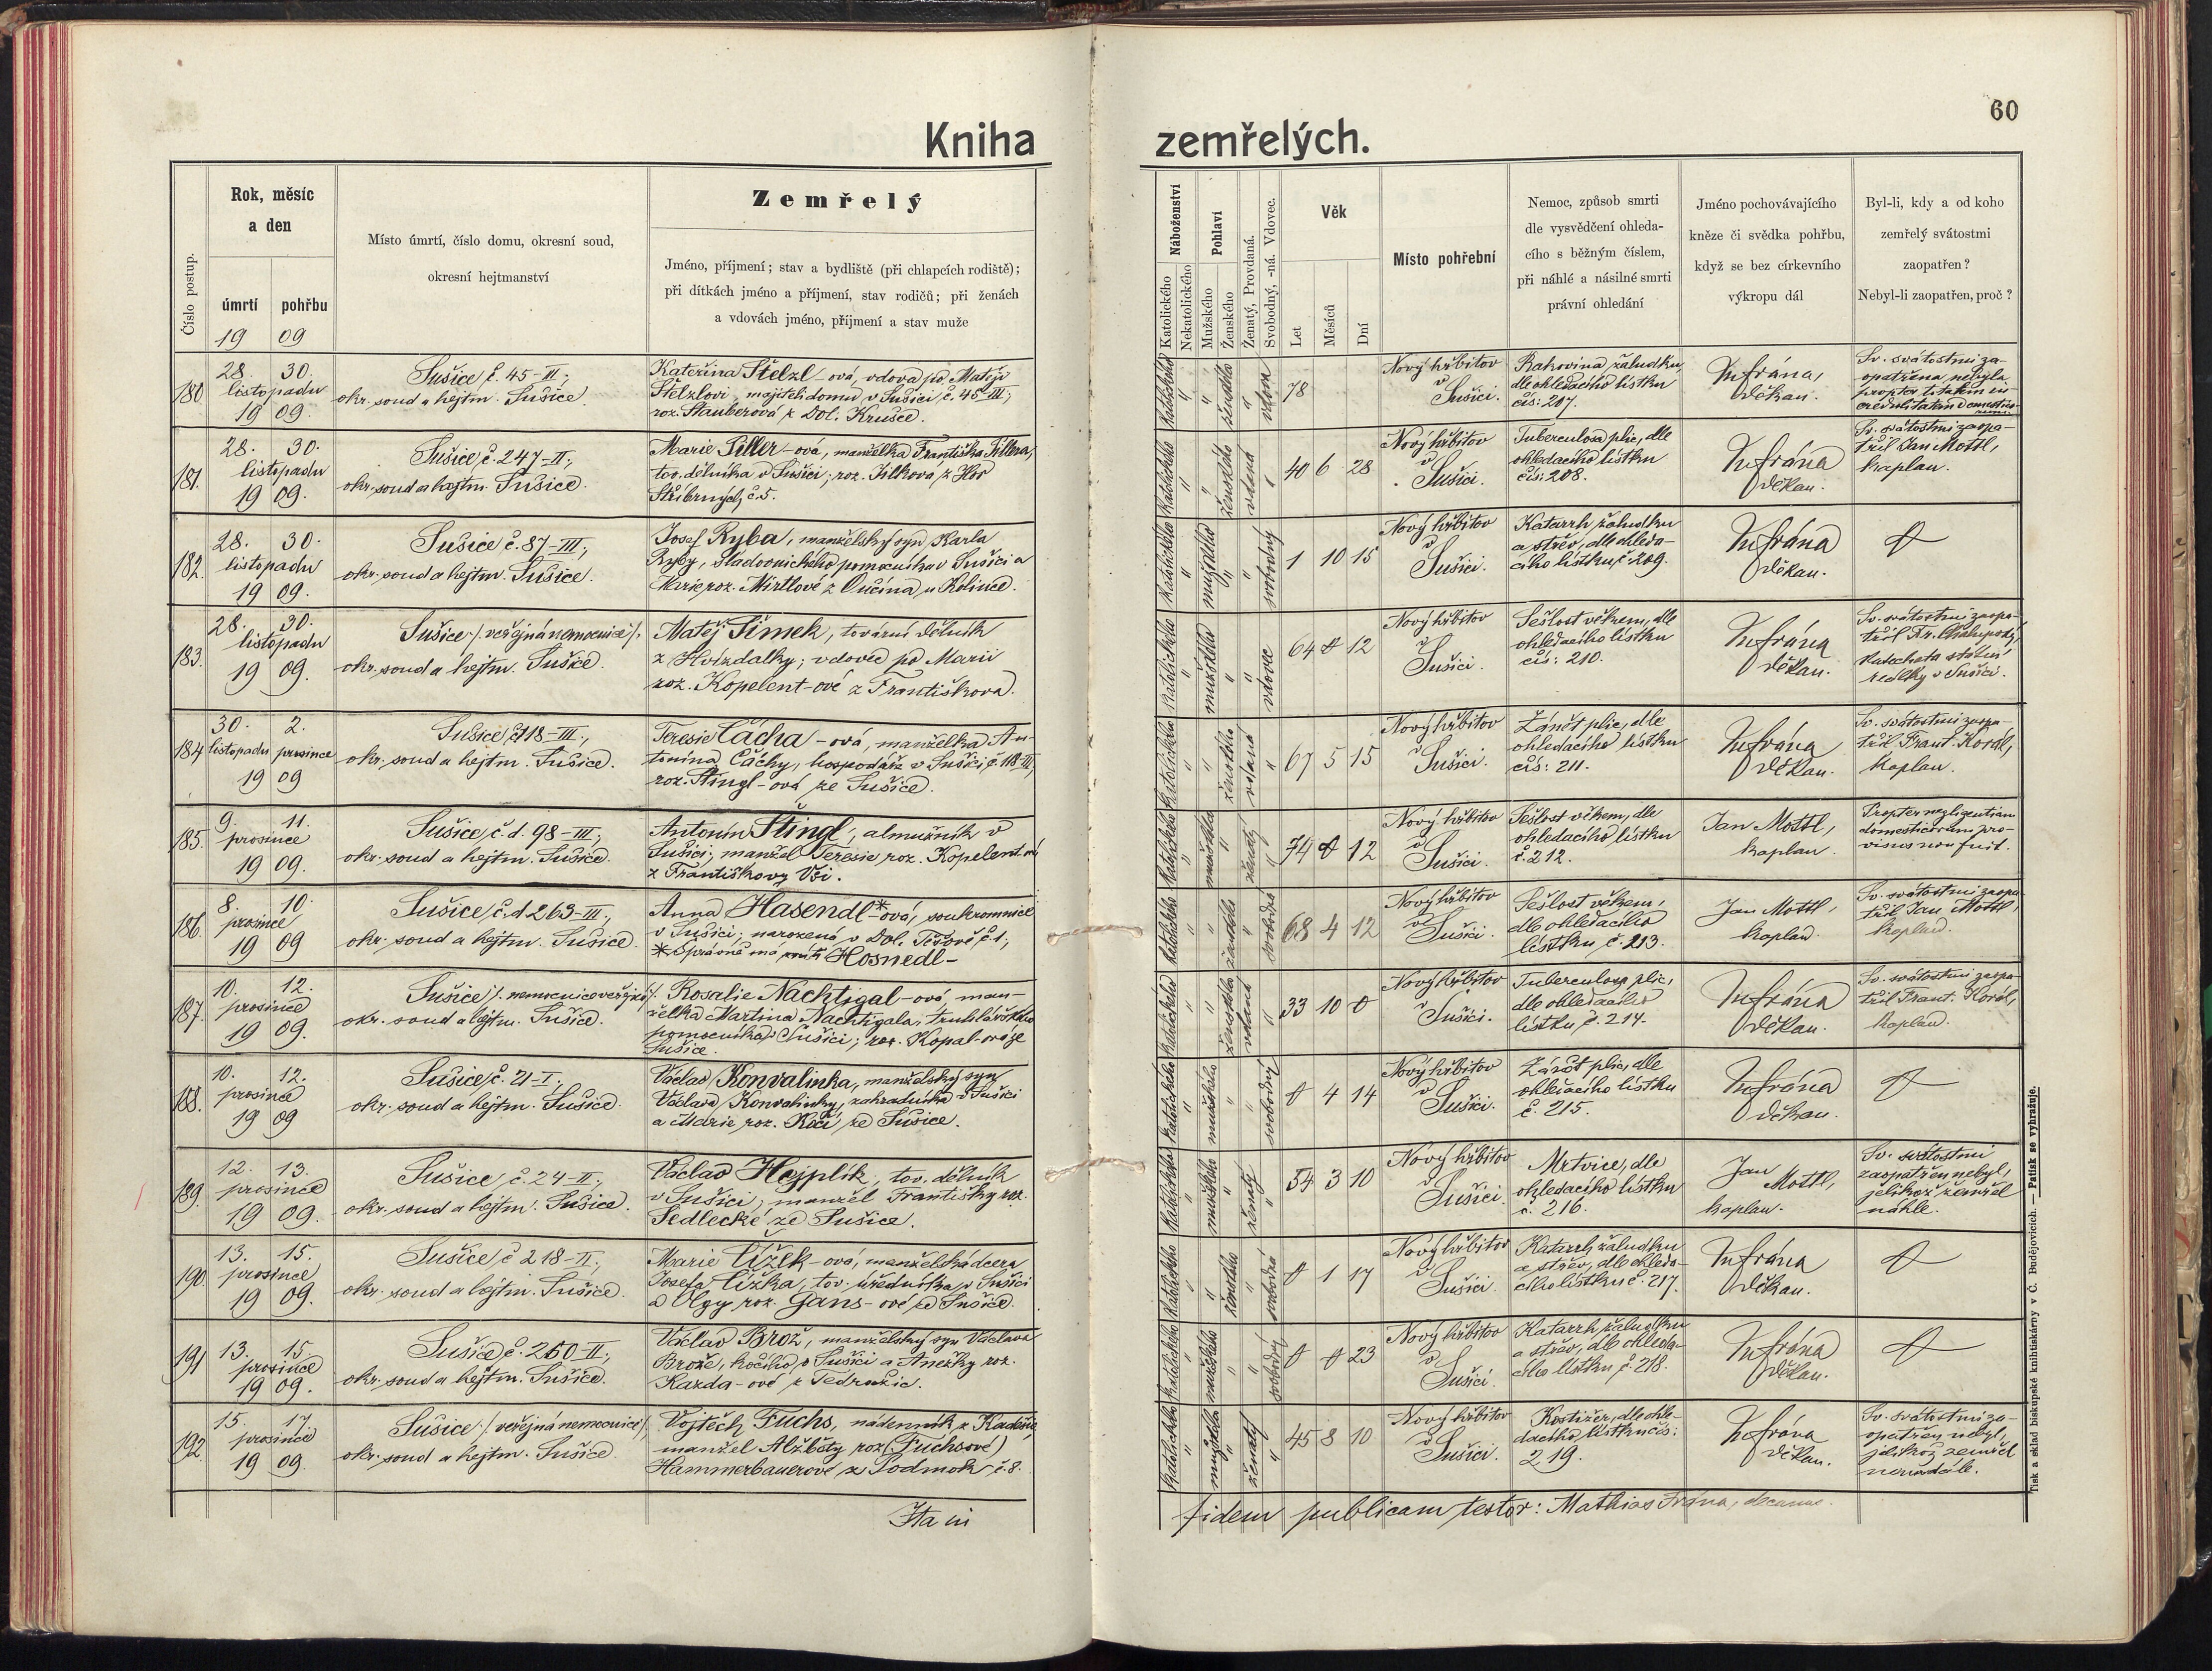 60
Kniha zemřelých.
Číslo postup.
Rok, měsíc
a den
úmrtí
pohřbu
Místo úmrtí, číslo domu, okresní soud,
okresní hejtmanství
Zemřelý
Jméno, příjmení; stav a bydliště (při chlapcích rodiště);
při dítkách jméno a příjmení, stav rodičů; při ženách
a vdovách jméno, příjmení a stav muže
Náboženství
Katolického
Nekatolického
Pohlaví
Mužského
Ženského
Ženatý, Provdaná.
Svobodný, -ná. Vdovec.
Věk
Let
Měsíců
Dní
Místo pohřební
Nemoc, způsob smrti
dle vysvědčení ohleda-
cího s běžným číslem,
při náhlé a násilné smrti
právní ohledání
Jméno pochovávajícího
kněze či svědka pohřbu,
když se bez církevního
výkropu dál
Byl-li, kdy a od koho
zemřelý svátostmi
zaopatřen?
Nebyl-li zaopatřen, proč?
19 09
180
28. 30.
listopadu
19 09.
Sušice č. 45-III.;
okr. soud a hejtm. Sušice.
Kateřina Štelzl-ová, vdova po Matěji
Štelzlovi, majiteli domu v Sušici č. 45-III;
roz. Stauberová z Dol. Krušce.
katolického
ženského
vdova
78
Nový hřbitov
v
Sušici.
Rakovina žaludku,
dle ohledacího lístku
čís: 207.
děkan.
Sv. svátostmi za-
opatřena nebyla
propter
181.
28. 30.
listopadu
19 09.
Sušice, č. 247-II.;
okr. soud a hejtm. Sušice.
Marie Piller-ová, manželka Františka Pillera,
tov. dělníka v Sušici; roz. Jílková z Hor
Stříbrných č. 5.
katolického
ženského
vdaná
40 6 28
Nový hřbitov
v
Sušici.
Tuberculosa plic, dle
ohledacího lístku
čís: 208.
děkan.
Sv. svátostmi zaopa-
třil Jan Mottl,
kaplan.
182.
28. 30.
listopadu
19 09.
Sušice č. 87-III.;
okr. soud a hejtm. Sušice.
Josef Ryba, manželský syn Karla
Ryby, sladovnického pomocníka v Sušici a
Marie roz. Mirtlové z Vučína u Kolince.
katolického
mužského
svobodný
1 10 15
Nový hřbitov
v
Sušici.
Katarrh žaludku
a střev, dle ohleda-
cího lístku č. 209.
děkan.
183.
28. 30.
listopadu
19 09.
Sušice /: veřejná nemocnice :/,
okr. soud a hejtm. Sušice.
Matěj Šimek, tovární dělník
z Hvízdalky; vdovec po Marii
roz. Kopelent-ové z Františkova.
katolického
mužského
vdovec
64 0 12
Nový hřbitov
v
Sušici.
Sešlost věkem, dle
ohledacího lístku
čís: 210.
děkan.
Sv. svátostmi zaopa-
třil Fr. Chalupský,
katecheta státní
reálky v Sušici.
184
30. 2.
listopadu prosince
19 09
Sušice č. 118-III.,
okr. soud a hejtm. Sušice.
Terezie Čácha-ová, manželka An-
tonína Čáchy, hospodáře v Sušici, č. 118-III,
roz. Štingl-ová ze Sušice.
katolického
ženského
vdaná
67 5 15
Nový hřbitov
v
Sušici.
Zánět plic, dle
ohledacího lístku
čís: 211.
děkan.
Sv. svátostmi zaopa-
třil Frant. Korál,
kaplan.
185.
9. 11.
prosince
19 09.
Sušice, č. d. 98-III.;
okr. soud a hejtm. Sušice.
Antonín Štingl, almužník v
Sušici; manžel Terezie roz. Kopelent-ové
z Františkovy Vsi.
katolického
mužského
ženatý
74 0 12
Nový hřbitov
v
Sušici.
Sešlost věkem, dle
ohledacího lístku
č. 212.
Jan Mottl,
kaplan.
Propter negligentiam
domesticorum pro-
visus non fuit.
186.
8. 10.
prosince
19 09
Sušice, č. d. 263-III.;
okr. soud a hejtm. Sušice.
Anna Hasendl*-ová, soukromnice
v Sušici; narozená v Dol. Těšově č. 1;
* Správně má Hosnedl-
katolického
ženského
svobodná
68 4 12
Nový hřbitov
v
Sušici.
Sešlost věkem,
dle ohledacího
lístku č. 213.
Jan Mottl,
kaplan.
Sv. svátostmi zaopa-
třil Jan Mottl,
kaplan.
187.
10. 12.
prosince
19 09.
Sušice /: nemocnice veřejná :/.
okr. soud a hejtm. Sušice.
Rosalie Nachtigal-ová, man-
želka Martina Nachtigala, truhlářského
pomocníka v Sušici; roz. Kopal-ová ze
Sušice.
katolického
ženského
vdaná
33 10 0
Nový hřbitov
v
Sušici.
Tuberculosa plic,
dle ohledacího
lístku, č. 214.
děkan.
Sv. svátostmi zaopa-
třil Frant. Korál,
kaplan.
188.
10. 12.
prosince
19 09
Sušice, č. 21-I.;
okr. soud a hejtm. Sušice.
Václav Konvalinka, manželský syn
Václava Konvalinky, zahradníka v Sušici
a Marie roz. Kočí ze Sušice.
katolického
mužského
svobodný
0 4 14
Nový hřbitov
v
Sušici.
Zánět plic, dle
ohledacího lístku
č. 215.
děkan.
189.
12. 13.
prosince
19 09.
Sušice, č. 24-II.;
okr. soud a hejtm. Sušice.
Václav Hejplík, tov. dělník
v Sušici; manžel Františky roz.
Sedlecké ze Sušice.
katolického
mužského
ženatý
54 3 10
Nový hřbitov
v
Sušici.
Mrtvice, dle
ohledacího lístku
č. 216.
Jan
Mottl,
kaplan.
Sv. svátostmi
zaopatřen nebyl,
jelikož zemřel
náhle.
190.
13. 15.
prosince
19 09.
Sušice, č. 218-II.;
okr. soud a hejtm. Sušice.
Marie Čížek-ová, manželská dcera
Josefa Čížka, tov. úředníka v Sušici
a Olgy roz. Gans-ové ze Sušice.
katolického
ženského
svobodná
0 1 17
Nový hřbitov
v
Sušici.
Katarrh žaludku
a střev, dle ohleda-
cího lístku č. 217.
děkan.
191
13. 15.
prosince
19 09.
Sušice č. 260-II.;
okr. soud a hejtm. Sušice.
Václav Brož, manželský syn Václava
Brože, kočího v Sušici a Anežky roz.
Kazda-ové z Tedražic.
katolického
mužského
svobodný
0 0 23
Nový hřbitov
v
Sušici.
Katarrh žaludku
a střev, dle ohleda-
cího lístku, č. 218.
děkan.
192.
15. 17.
prosince
19 09.
Sušice /: veřejná nemocnice :/,
okr. soud a hejtm. Sušice.
Vojtěch Fuchs, nádenník z Kadešic
manžel Alžběty roz. (Fuchsové)
Hammerbauerové z Podmok č. 8.
katolického
mužského
ženatý
45 8 10
Nový hřbitov
v
Sušici.
Kostižer, dle ohle-
dacího lístku čís:
219.
děkan.
Sv. svátostmi za-
opatřen nebyl,
jelikož zemřel
nenadále.
Ita in fidem publicam testor: Mathias Frána, decanus.
Tisk a sklad biskupské knihtiskárny v Č. Budějovicích. — Patisk se vyhražuje.